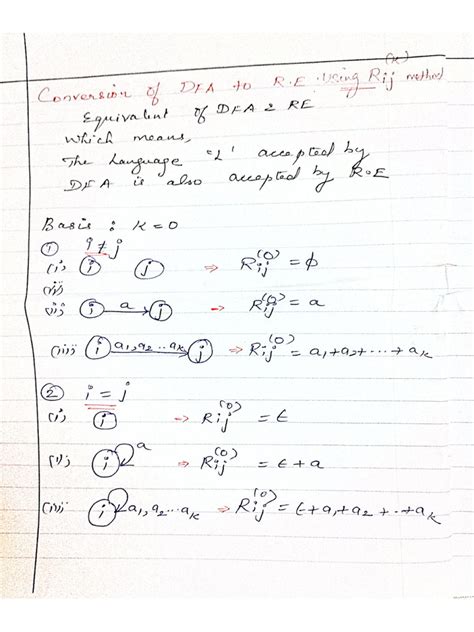 Conversion of DFA to R.E. using Rij^(k) method
Equivalent of DFA & RE
Which means,
The Language "L" accepted by
DFA is also accepted by R.E
Basis : K=0
① i ≠ j
(i) i j ⇒ Rij^(0) = ϕ
(ii)
(ii) i a j → Rij^(0) = a
(iii) i a1,a2...ak j ⇒ Rij^(0) = a1+a2+...+ak
② i = j
(i) i → Rij^(0) = ϵ
(ii) i a ⇒ Rij^(0) = ϵ+a
(iii) i a1,a2...ak ⇒ Rij^(0) = ϵ+a1+a2+..+ak